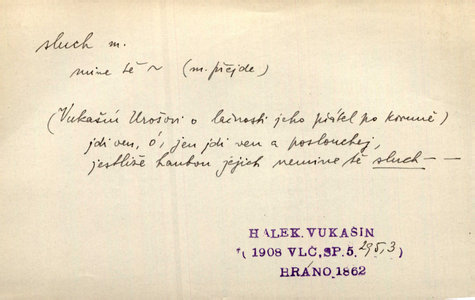 sluch m.
mine tě ~ (m. přejde)
(Vukašin Urošovi o lačnosti jeho přátel po koruně)
jdi ven, ó, jen jdi ven a poslouchej,
jestliže hanbou jejich nemine tě sluch – –
HALEK. VUKAŠIN
(1908 VLČ, SP. 5. 295,3)
HRÁNO 1862